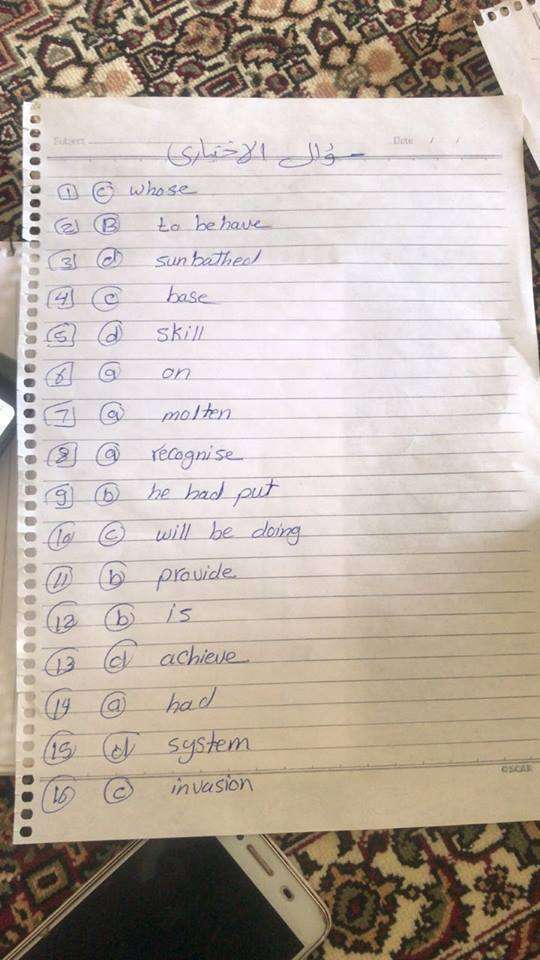 Subject
Date / /
سؤال الاختياري
1 c whose
2 B to behave
3 d sunbathed
4 c base
5 d skill
6 a on
7 a molten
8 a recognise
9 b he had put
10 c will be doing
11 b provide
12 b is
13 d achieve
14 a had
15 d system
16 c invasion